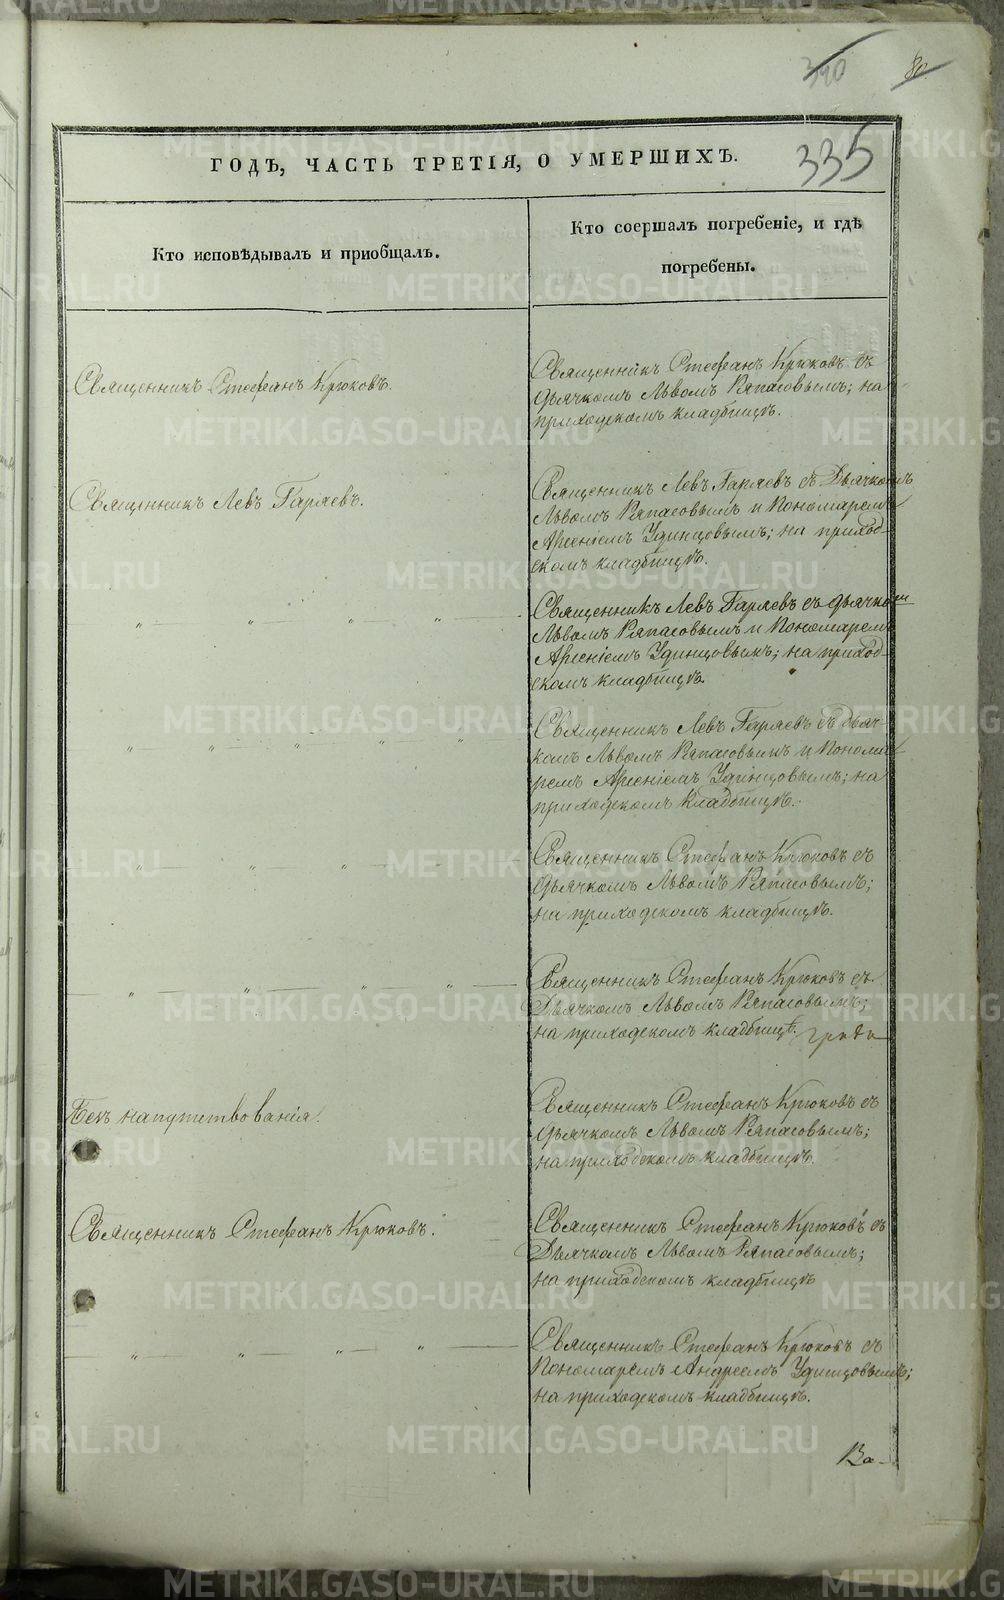 340
80
335
ГОДЪ, ЧАСТЬ ТРЕТІЯ, О УМЕРШИХЪ.
Кто исповѣдывалъ и приобщалъ.
Кто соершалъ погребеніе, и гдѣ
погребены.
Священникъ Стефанъ Крюковъ.
Священникъ Стефанъ Крюковъ съ
дьячкомъ Львомъ Ряпасовымъ; на
приходскомъ кладбищѣ.
Священникъ Левъ Гаряевъ.
Священникъ Левъ Гаряевъ съ Дьячкомъ
Львомъ Ряпасовымъ и Пономаремъ
Арсеніемъ Удинцовымъ; на приход-
скомъ кладбищѣ.
„ — „ — „ — „ —
Священникъ Левъ Гаряевъ съ дьячкомъ
Львомъ Ряпасовымъ и Пономаремъ
Арсеніемъ Удинцовымъ; на приход-
скомъ кладбищѣ.
„ — „ — „ — „ — „
Священникъ Левъ Гаряевъ съ дьяч-
комъ Львомъ Ряпасовымъ и Понома-
ремъ Арсеніемъ Удинцовымъ; на
приходскомъ кладбищѣ.
„ — „ — „ — „ —
Священникъ Стефанъ Крюковъ съ
дьячкомъ Львомъ Ряпасовымъ;
на приходскомъ кладбищѣ.
„ — „ — „ — „ —
Священникъ Стефанъ Крюковъ съ
Дьячкомъ Львомъ Ряпасовымъ;
на приходскомъ кладбищѣ.
Безъ напутствованія.
Священникъ Стефанъ Крюковъ съ
дьячкомъ Львомъ Ряпасовымъ;
на приходскомъ кладбищѣ.
Священникъ Стефанъ Крюковъ.
Священникъ Стефанъ Крюковъ съ
Дьячкомъ Львомъ Ряпасовымъ;
на приходскомъ кладбищѣ
— „ — „ — „ — „ —
Священникъ Стефанъ Крюковъ съ
Пономаремъ Андреемъ Удинцовымъ;
на приходскомъ кладбищѣ.
METRIKI.GASO-URAL.RU